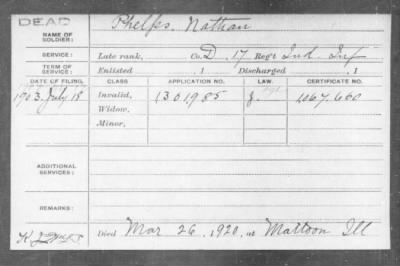 DEAD
NAME OF SOLDIER: Phelps, Nathan
SERVICE: Late rank, Co. D, 17 Reg't Ind. Inf
TERM OF SERVICE: Enlisted , 1 Discharged , 1
DATE OF FILING. CLASS. APPLICATION NO. LAW. CERTIFICATE NO.
1903. July 18 Invalid, 1301,985 1067.660
Widow,
Minor,
ADDITIONAL SERVICES:
REMARKS:
Died Mar 26, 1920, at Mattoon Ill